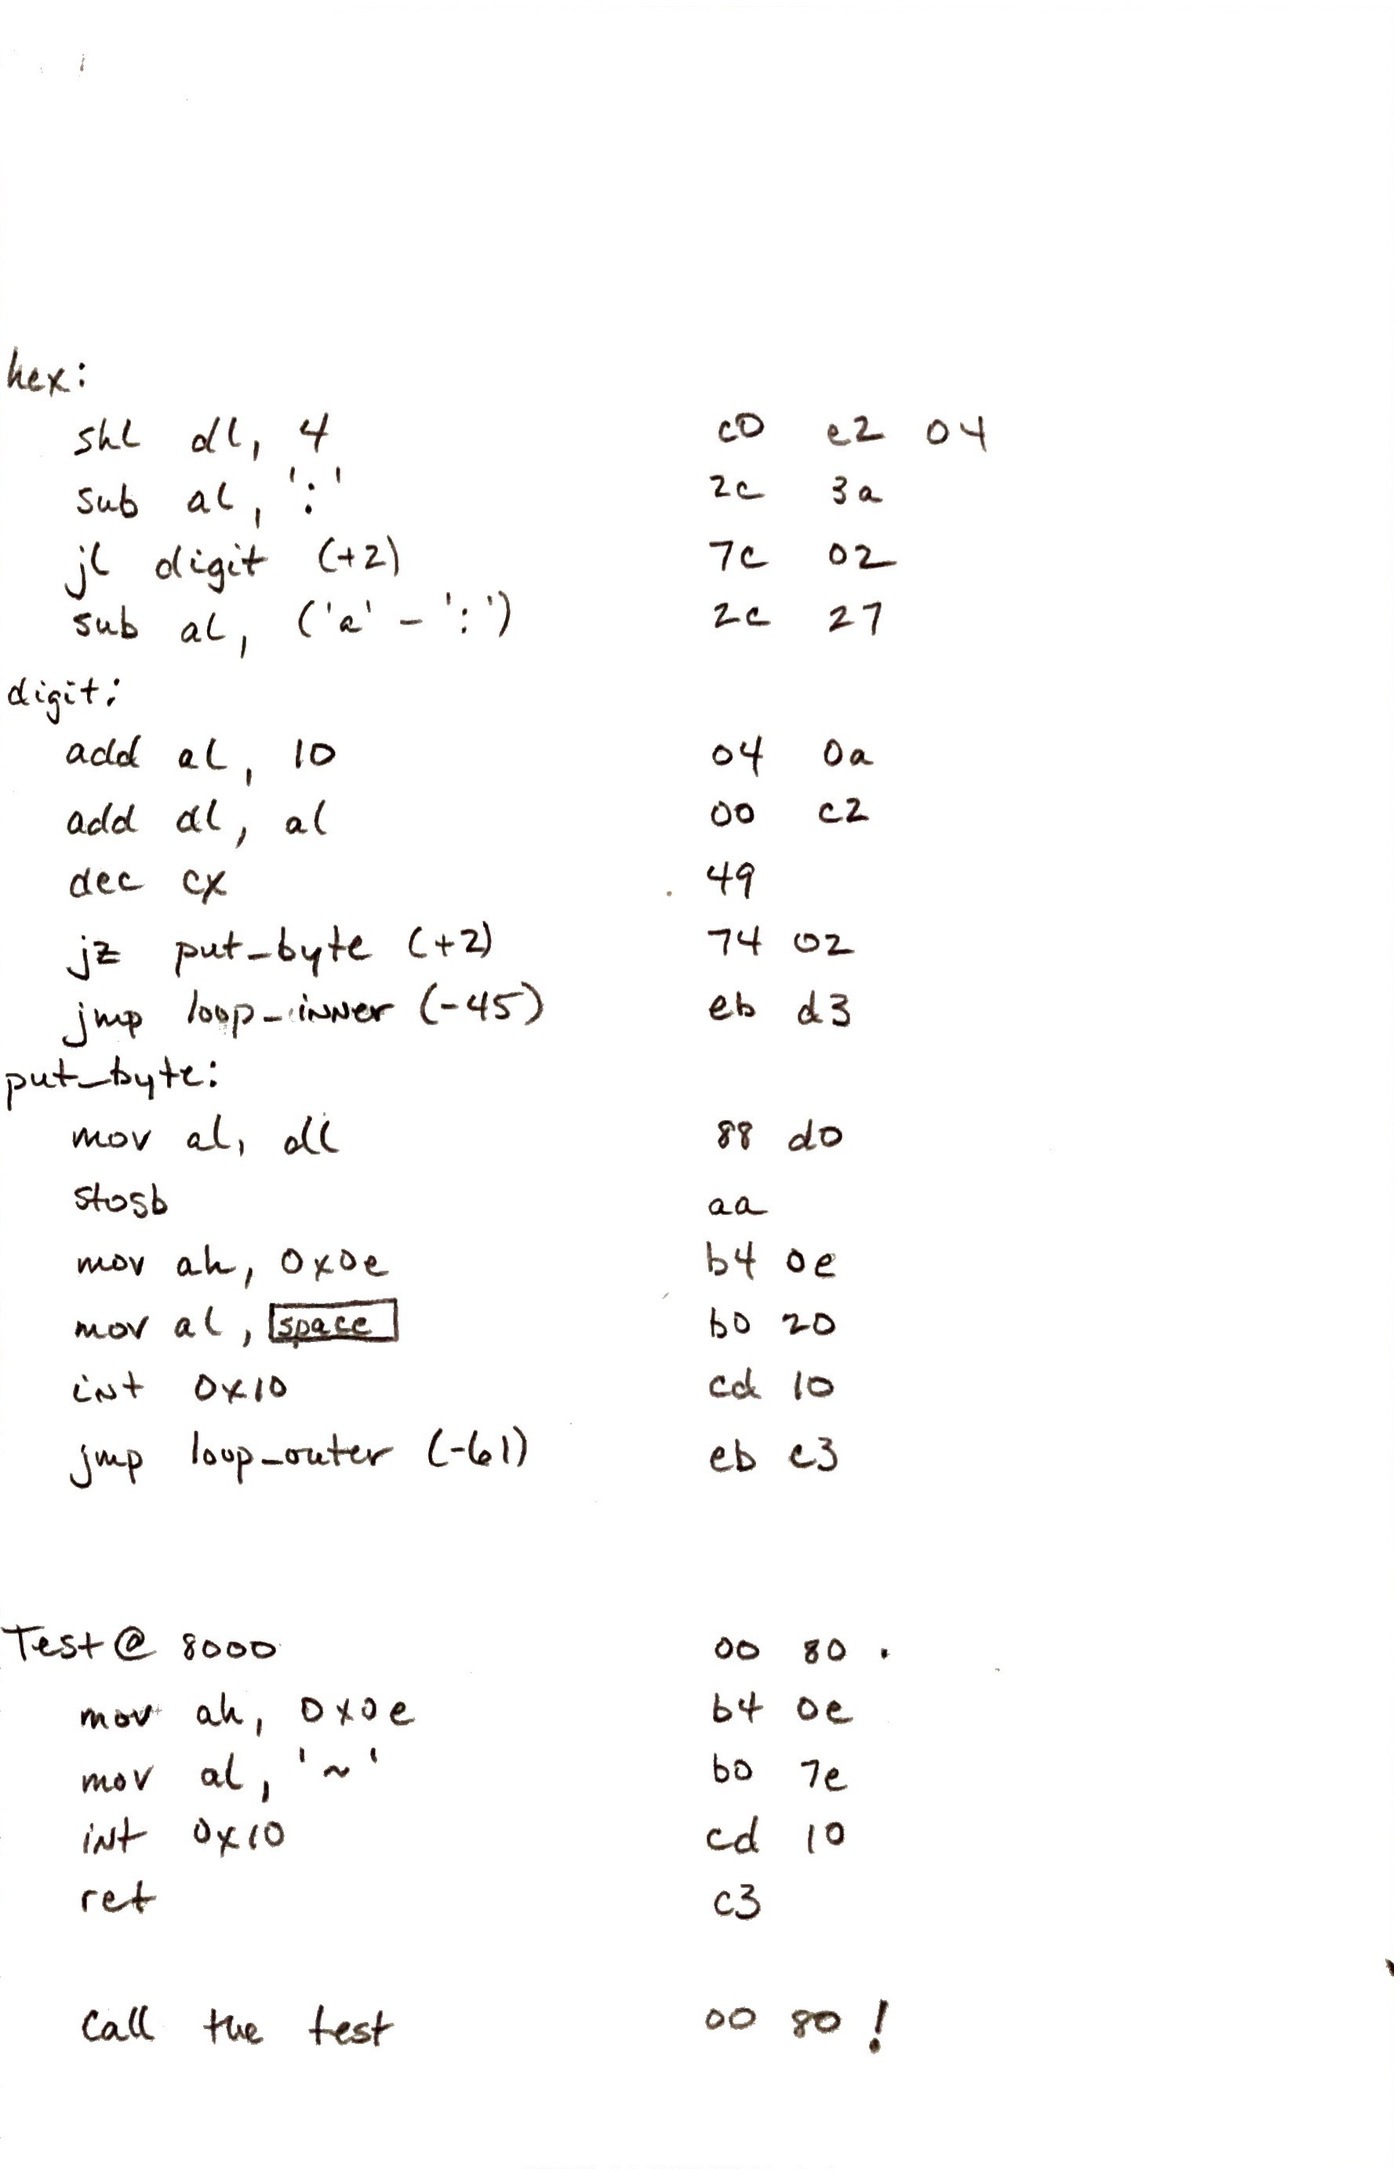 hex:
shl dl, 4 c0 e2 04
sub al, ':' 2c 3a
jl digit (+2) 7c 02
sub al, ('a' - ':') 2c 27
digit:
add al, 10 04 0a
add dl, al 00 c2
dec cx 49
jz put_byte (+2) 74 02
jmp loop_inner (-45) eb d3
put_byte:
mov al, dl 88 d0
stosb aa
mov ah, 0x0e b4 0e
mov al, space b0 20
int 0x10 cd 10
jmp loop_outer (-61) eb c3
Test @ 8000 00 80 .
mov ah, 0x0e b4 0e
mov al, '~' b0 7e
int 0x10 cd 10
ret c3
Call the test 00 80 !